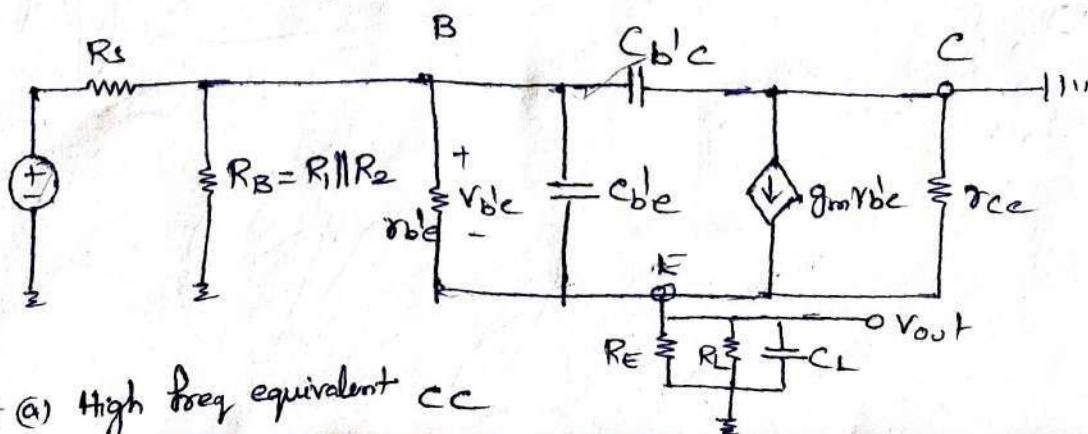 B
Rs
Cb'c
C
RB = R1||R2
+
Vb'e
-
rb'e
Cb'e
gmvb'e
rce
E
Vout
RE
RL
CL
(a) High freq equivalent CC